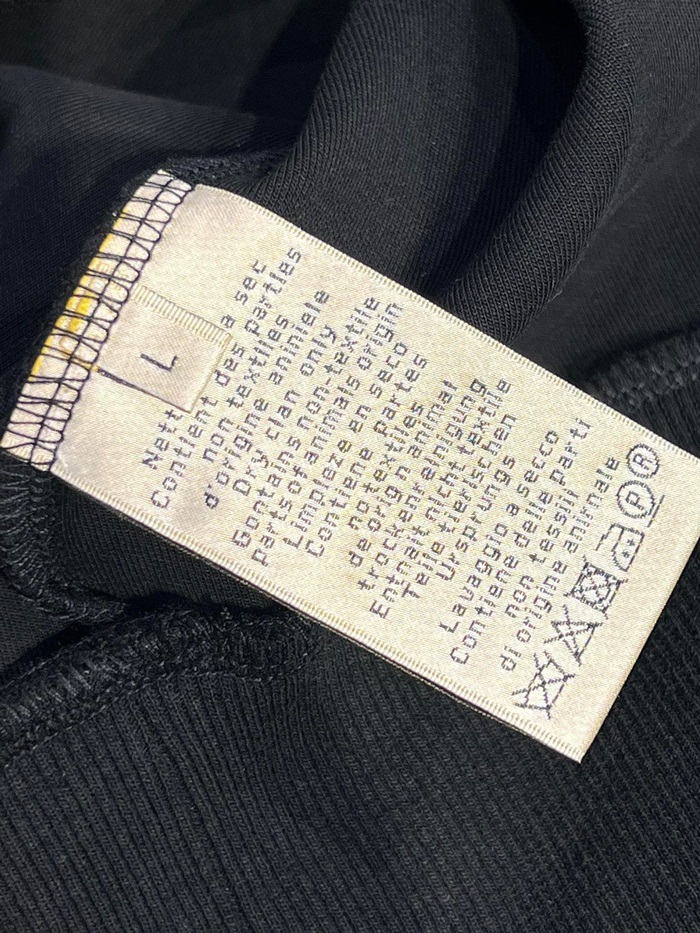 L
Nett
a sec
Contient des parties
non textiles
d'origine animale
Dry clan only
Gontains non-textile
partsofanimals origin
Limpieze en seco
Contiene Partes
de notextiles
origen animal
trockenkeinigung
Entrait nicht textile
Teile tierischen
Ursprungs
Lavaggio a secco
Contiene delle parti
di non tessili
di origine animale
P R